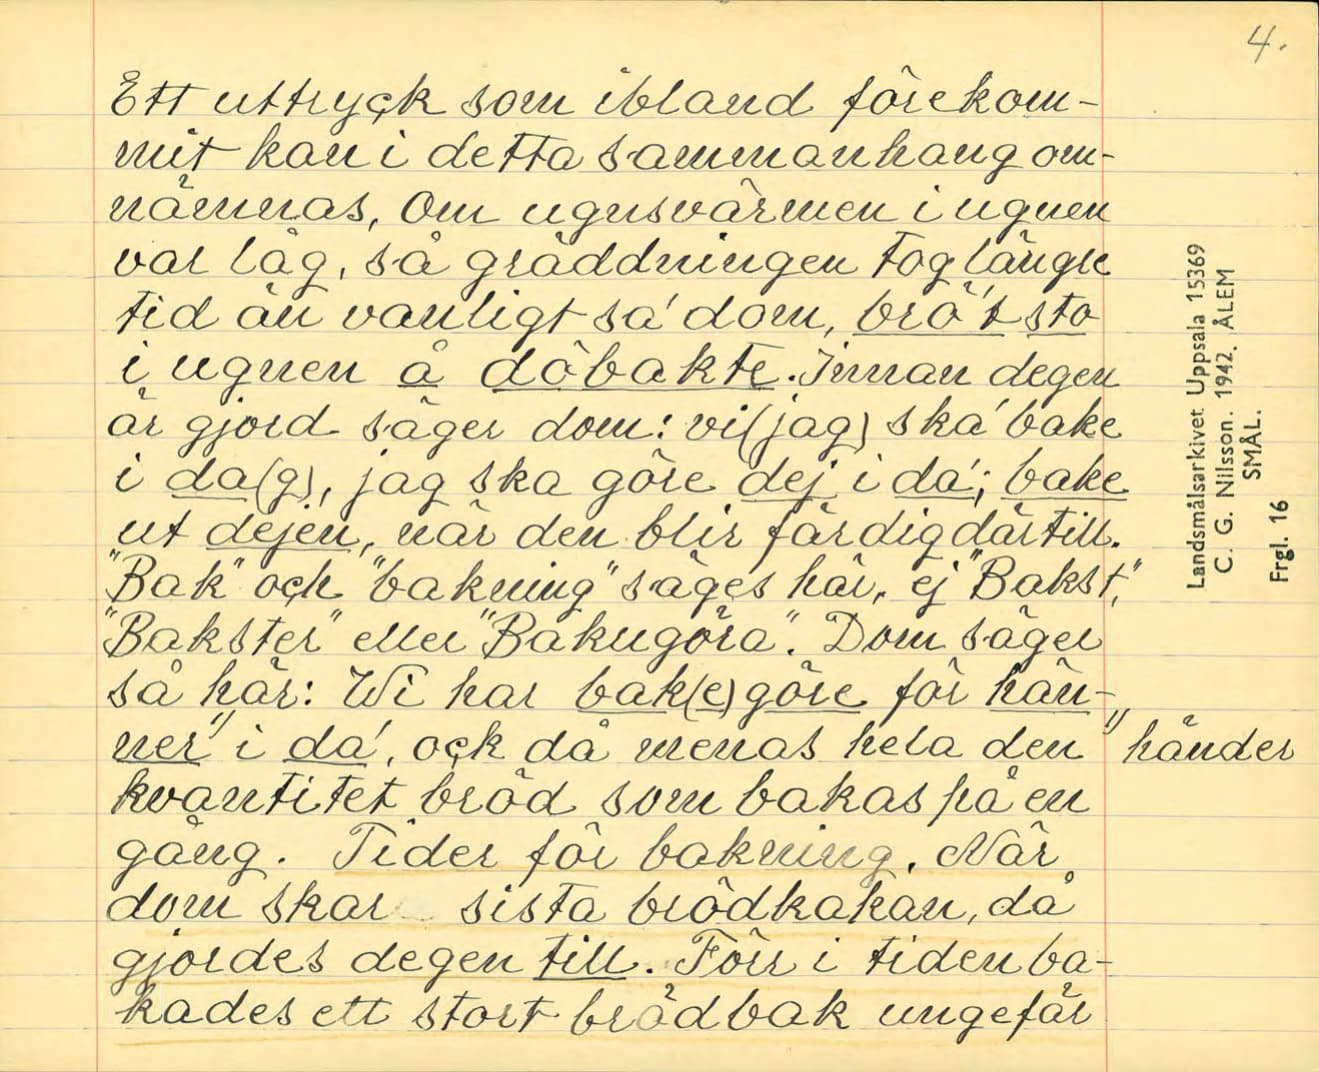 4.
Ett uttryck som ibland förekom-
mit kan i detta sammanhang om-
nämnas, Om ugnsvärmen i ugnen
var låg, så gräddningen tog längre
tid än vanligt sa' dom, brö't sto
i ugnen å döbakte. Innan degen
är gjord säger dom: vi (jag) ska' bake
i da(g), jag ska göre dej i da'; bake
ut dejen, när den blir färdig därtill.
"Bak" och "bakning" säges här, ej "Bakst",
"Bakster" eller "Bakugöra". Dom säger
så här: Wi har bak(e)göre för hän-
ner" i da', ock då menas hela den
" händer
kvantitet bröd som bakas på en
gång. Tider för bakning. När
dom skar sista brödkakan, då
gjordes degen till. Förr i tiden ba-
kades ett stort brödbak ungefär
Landsmålsarkivet Uppsala 15369
C. G. Nilsson. 1942. ÅLEM
SMÅL.
Frgl. 16